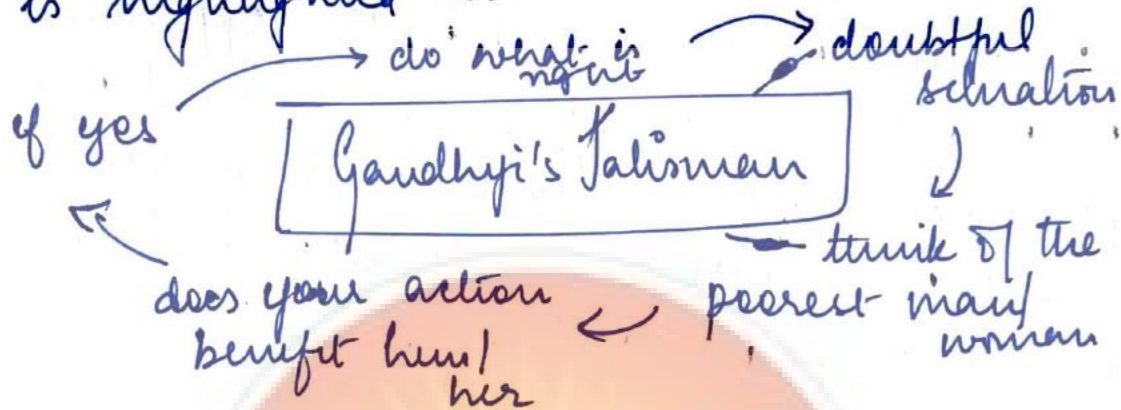 is highlighted
do what is
right
doubtful
situation
if yes
Gandhiji's Talisman
think of the
poorest man/
woman
does your action
benefit him/
her